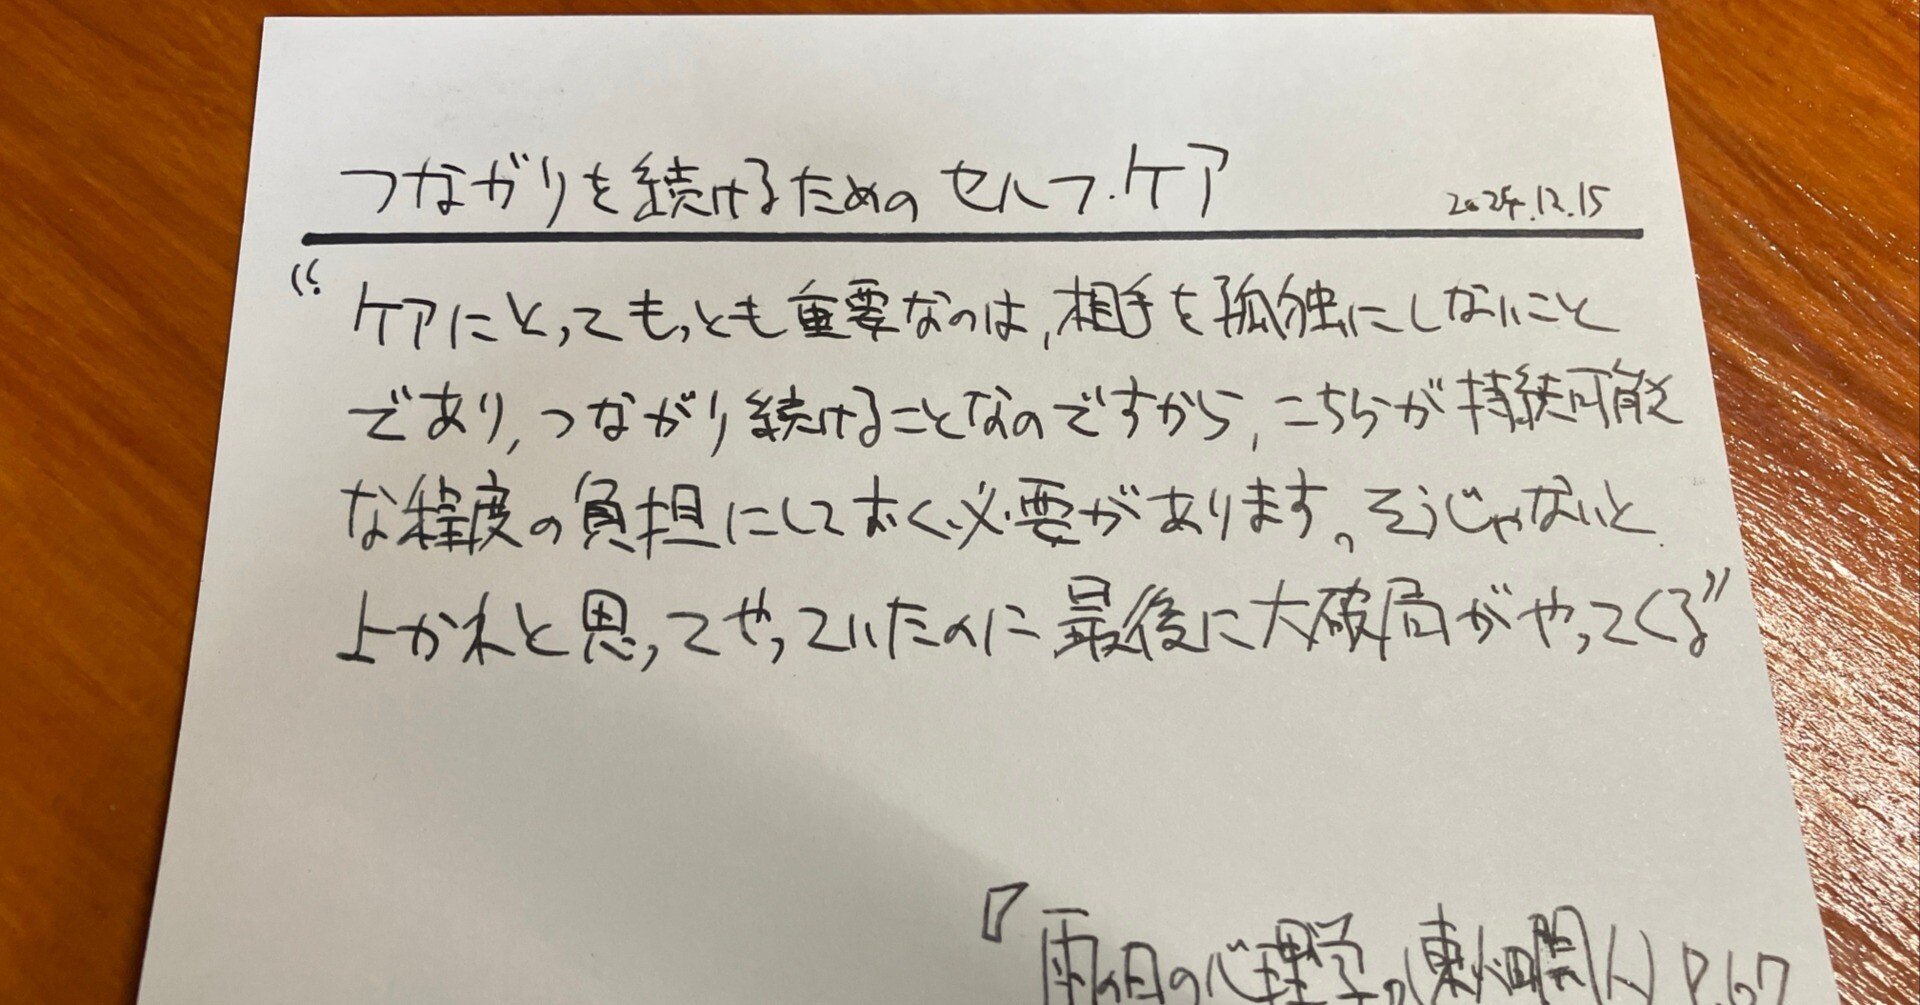 つながりを続けるためのセルフ・ケア 2024.12.15
“ケアにとってもっとも重要なのは,相手を孤独にしないこと
であり,つながり続けることなのですから,こちらが持続可能
な程度の負担にしておく必要があります。そうじゃないと
よかれと思ってやっていたのに最後に大破局がやってくる”
『雨の日の心理学』(東畑開人) P.67